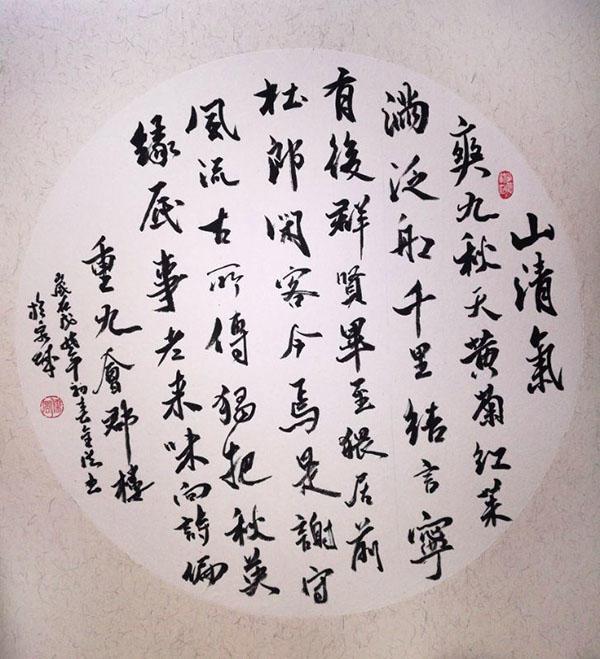 山清氣
爽九秋天黄菊紅茱
滿泛船千里結言寧
有後群賢畢至猥居前
杜郎閑客今焉是謝守
風流古所傳獨把秋英
緣底事老来味向詩偏
重九會郡樓
歲在戊戌年初春金书
於泉城